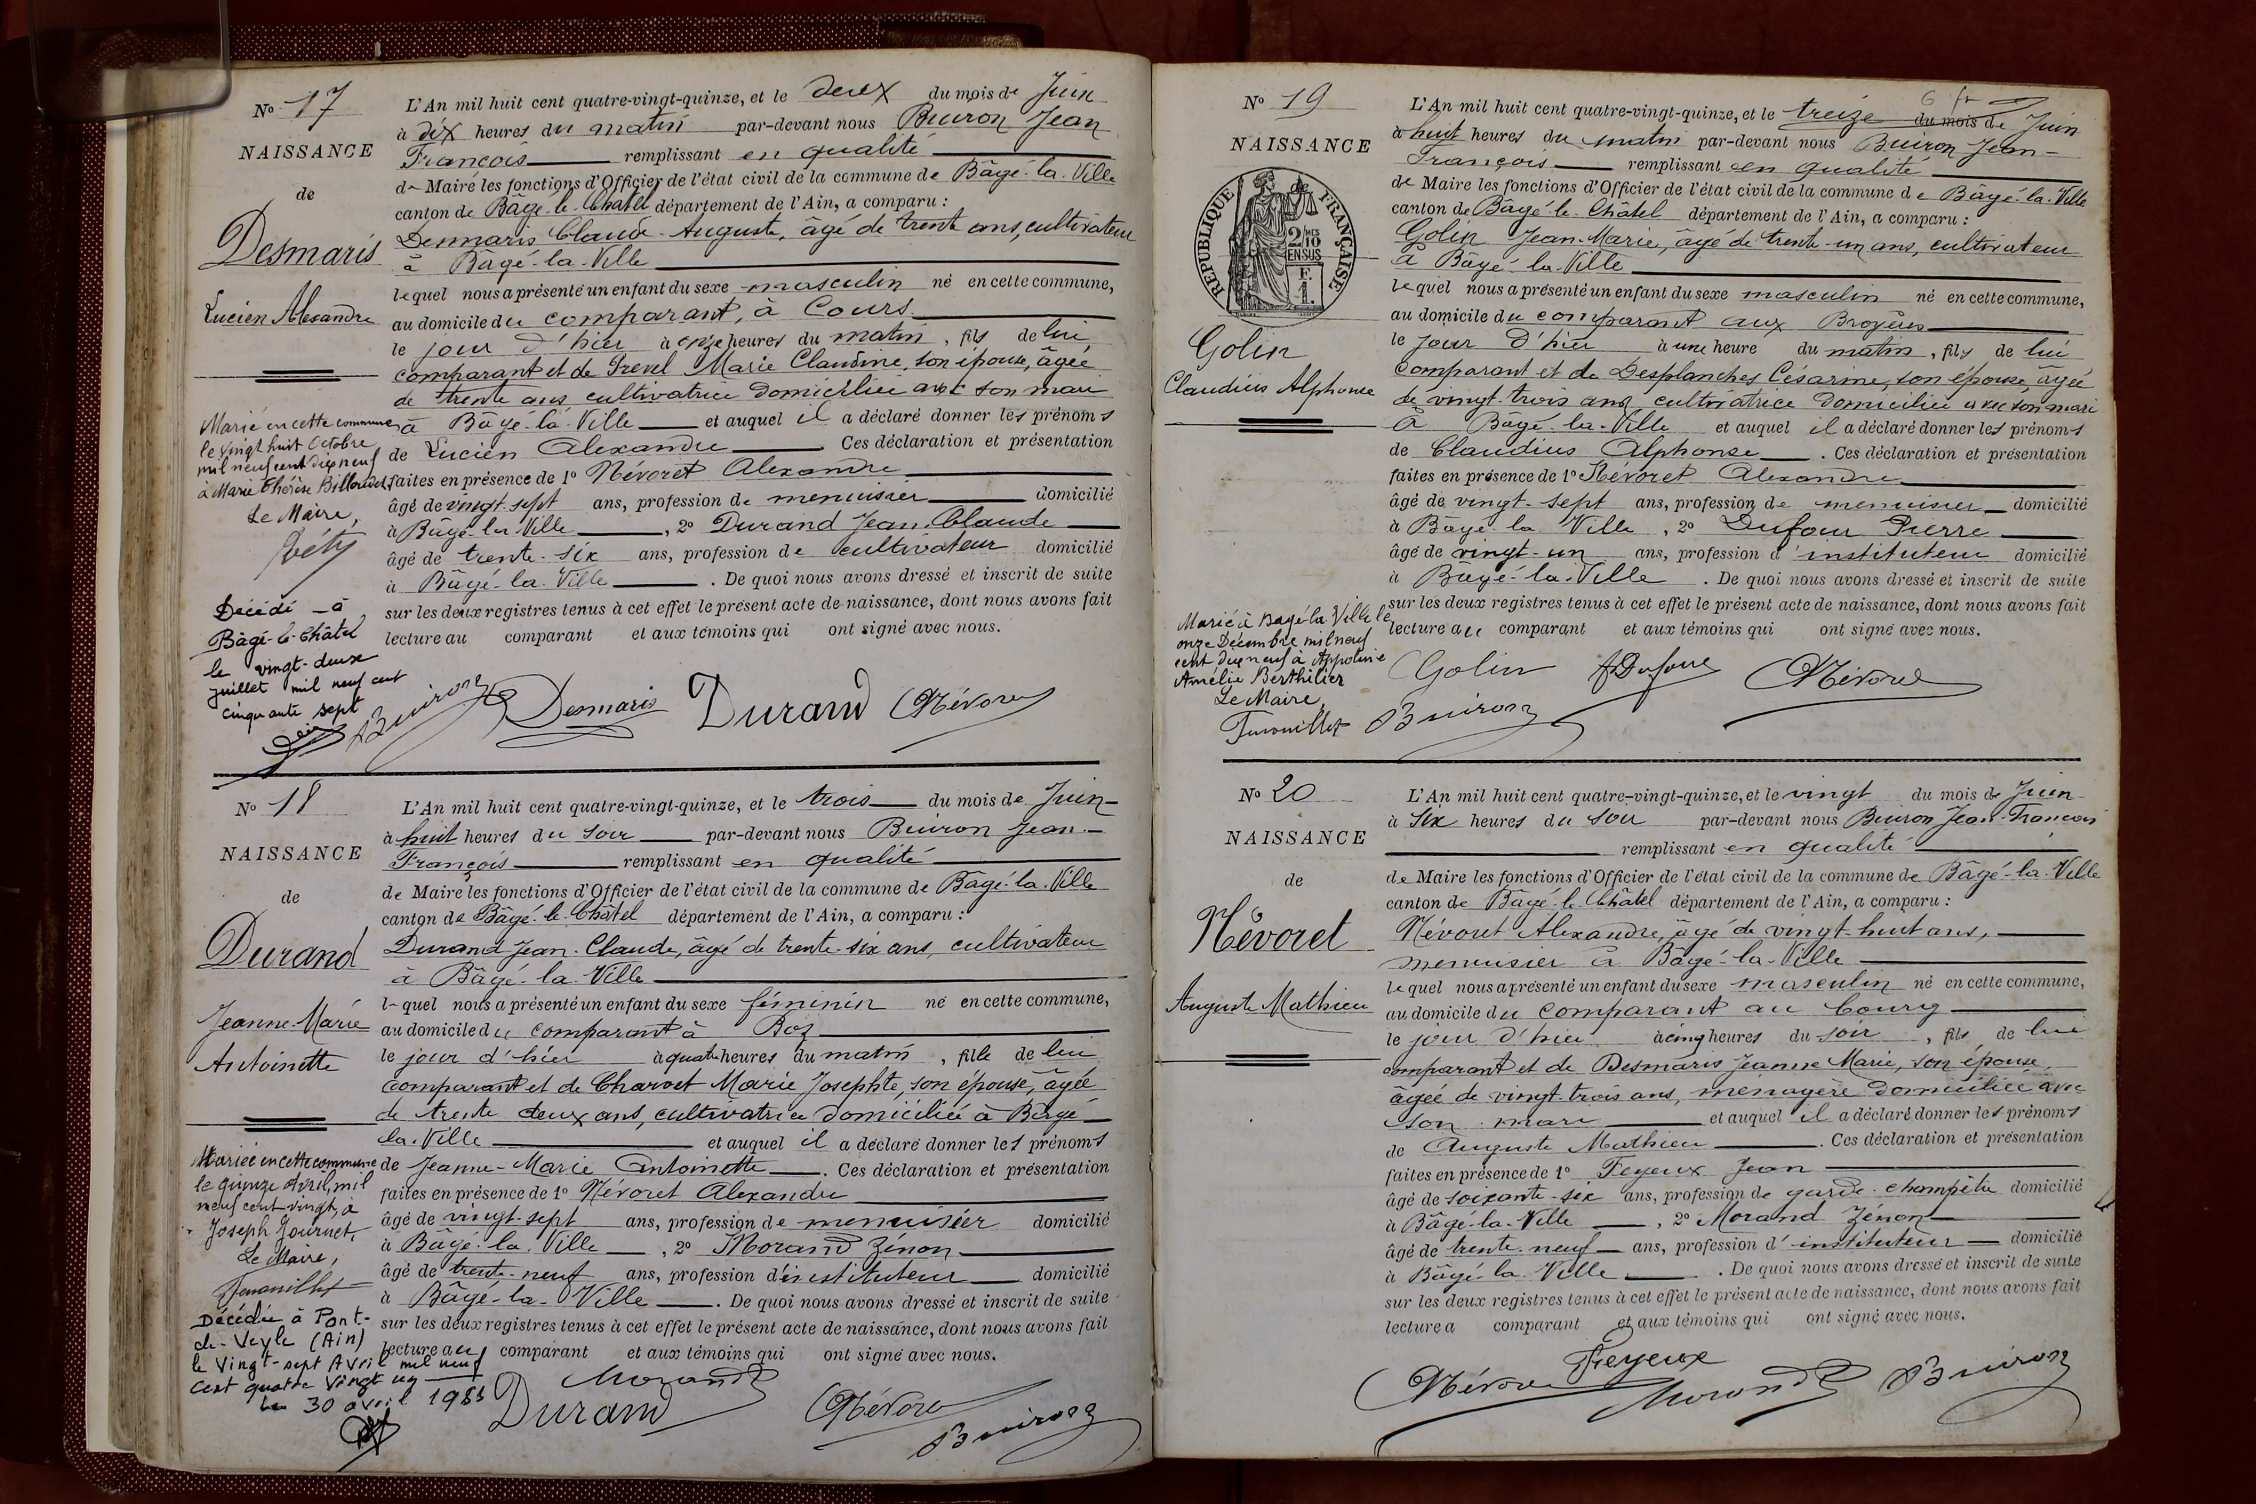 Nº 17
NAISSANCE
de
Desmaris
Lucien Alexandre
Marié en cette commune
le vingt huit Octobre
mil neuf cent dix neuf
à Marie Thérèse
Le Maire,
Décédé à
Bâgé-le-Châtel
le vingt-deux
juillet mil neuf cent
cinquante sept
L'An mil huit cent quatre-vingt-quinze, et le deux du mois de Juin
à dix heures du matin par-devant nous Buiron Jean
François remplissant en qualité
de Maire les fonctions d'Officier de l'état civil de la commune de Bâgé-la-Ville
canton de Bâgé-le-Châtel département de l'Ain, a comparu :
Desmaris Claude-Auguste, âgé de trente ans, cultivateur
à Bâgé-la-Ville
lequel nous a présenté un enfant du sexe masculin né en cette commune,
au domicile du comparant, à Cours
le jour d'hier à onze heures du matin, fils de lui
comparant et de Prevel Marie Claudine, son épouse, âgée
de trente ans cultivatrice domiciliée avec son mari
à Bâgé-la-Ville et auquel il a déclaré donner les prénoms
de Lucien Alexandre Ces déclaration et présentation
faites en présence de 1º Névoret Alexandre
âgé de vingt-sept ans, profession de menuisier domicilié
à Bâgé-la-Ville, 2º Durand Jean-Claude
âgé de trente-six ans, profession de cultivateur domicilié
à Bâgé-la-Ville. De quoi nous avons dressé et inscrit de suite
sur les deux registres tenus à cet effet le présent acte de naissance, dont nous avons fait
lecture au comparant et aux témoins qui ont signé avec nous.
Buiron Desmaris Durand Névoret
Nº 18
NAISSANCE
de
Durand
Jeanne-Marie
Antoinette
Mariée en cette commune
le quinze Avril, mil
neuf cent vingt, à
Joseph Journet,
Le Maire,
Décédée à Pont-
de-Veyle (Ain)
le vingt-sept Avril mil neuf
cent quatre vingt un
30 avril
L'An mil huit cent quatre-vingt-quinze, et le trois du mois de Juin
à huit heures du soir par-devant nous Buiron Jean-
François remplissant en qualité
de Maire les fonctions d'Officier de l'état civil de la commune de Bâgé-la-Ville
canton de Bâgé-le-Châtel département de l'Ain, a comparu :
Durand Jean-Claude, âgé de trente-six ans, cultivateur
à Bâgé-la-Ville
lequel nous a présenté un enfant du sexe féminin né en cette commune,
au domicile du comparant à Boz
le jour d'hier à quatre heures du matin, fille de lui
comparant et de Charvet Marie Josephte, son épouse, âgée
de trente deux ans, cultivatrice domiciliée à Bâgé
la-Ville et auquel il a déclaré donner les prénoms
de Jeanne-Marie Antoinette. Ces déclaration et présentation
faites en présence de 1º Névoret Alexandre
âgé de vingt-sept ans, profession de menuisier domicilié
à Bâgé-la-Ville, 2º Morand Zénon
âgé de trente-neuf ans, profession d'instituteur domicilié
à Bâgé-la-Ville. De quoi nous avons dressé et inscrit de suite
sur les deux registres tenus à cet effet le présent acte de naissance, dont nous avons fait
lecture au comparant et aux témoins qui ont signé avec nous.
Morand
Durand Névoret
Buiron
Nº 19
NAISSANCE
de
RÉPUBLIQUE FRANÇAISE
2/10 EN SUS
Golin
Claudius Alphonse
Marié à Bagé-la-Ville le
onze Décembre mil neuf
cent dix neuf à Appoline
Amélie Berthilier
Le Maire,
L'An mil huit cent quatre-vingt-quinze, et le treize du mois de Juin
à huit heures du matin par-devant nous Buiron Jean-
François remplissant en qualité
de Maire les fonctions d'Officier de l'état civil de la commune de Bâgé-la-Ville
canton de Bâgé-le-Châtel département de l'Ain, a comparu :
Golin Jean-Marie, âgé de trente-un ans, cultivateur
à Bâgé-la-Ville
lequel nous a présenté un enfant du sexe masculin né en cette commune,
au domicile du comparant aux Broyères
le jour d'hier à une heure du matin, fils de lui
comparant et de Desplanches Césarine, son épouse, âgée
de vingt-trois ans cultivatrice domiciliée avec son mari
à Bâgé-la-Ville et auquel il a déclaré donner les prénoms
de Claudius Alphonse. Ces déclaration et présentation
faites en présence de 1º Névoret Alexandre
âgé de vingt-sept ans, profession de menuisier domicilié
à Bâgé-la-Ville, 2º Dufour Pierre
âgé de vingt-un ans, profession d'instituteur domicilié
à Bâgé-la-Ville. De quoi nous avons dressé et inscrit de suite
sur les deux registres tenus à cet effet le présent acte de naissance, dont nous avons fait
lecture au comparant et aux témoins qui ont signé avec nous.
Golin Dufour Névoret
Buiron
Nº 20
NAISSANCE
de
Névoret
Auguste Mathieu
L'An mil huit cent quatre-vingt-quinze, et le vingt du mois de Juin
à six heures du soir par-devant nous Buiron Jean-François
remplissant en qualité
de Maire les fonctions d'Officier de l'état civil de la commune de Bâgé-la-Ville
canton de Bâgé-le-Châtel département de l'Ain, a comparu :
Névoret Alexandre, âgé de vingt-huit ans,
menuisier à Bâgé-la-Ville
lequel nous a présenté un enfant du sexe masculin né en cette commune,
au domicile du comparant au bourg
le jour d'hier à cinq heures du soir, fils de lui
comparant et de Desmaris Jeanne Marie, son épouse,
âgée de vingt-trois ans, ménagère domiciliée avec
son mari et auquel il a déclaré donner les prénoms
de Auguste Mathieu. Ces déclaration et présentation
faites en présence de 1º Feyeux Jean
âgé de soixante-six ans, profession de garde-champêtre domicilié
à Bâgé-la-Ville, 2º Morand Zénon
âgé de trente-neuf ans, profession d'instituteur domicilié
à Bâgé-la-Ville. De quoi nous avons dressé et inscrit de suite
sur les deux registres tenus à cet effet le présent acte de naissance, dont nous avons fait
lecture a comparant et aux témoins qui ont signé avec nous.
Névoret Feyeux Morand Buiron